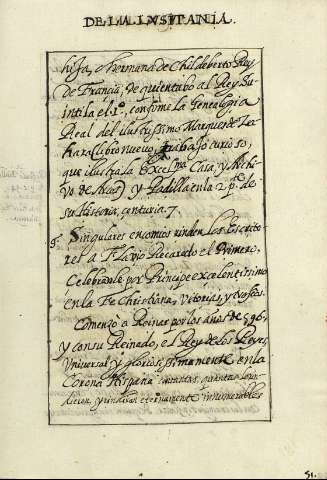 DE LA LVSITANIA.
hija, o hermana de Childeberto Rey
de Francia, de quien tabo al Rey Sui
intila el 1º, conforme la Genealogia
Real del ilustrissimo Marques de
(libro nuevo, trabajo curioso,
que ilustra la Excelma Casa, y
vo de ) y Padilla en la 2 pte de
su Historia, centuria 7.
Singulares encomios rinden los Escrito-
res a Flavio Recaredo el Primero,
Celebranle por Principe excelentissimo
en la Fe Christiana, Vitorias, y
Comenzò a Reinar por los años de 596,
y con su Reinado, el Rey de los Reyes
Universal, y gloriosissimamente en la
Corona Hispana quantas
y eternamente innumerables
51.